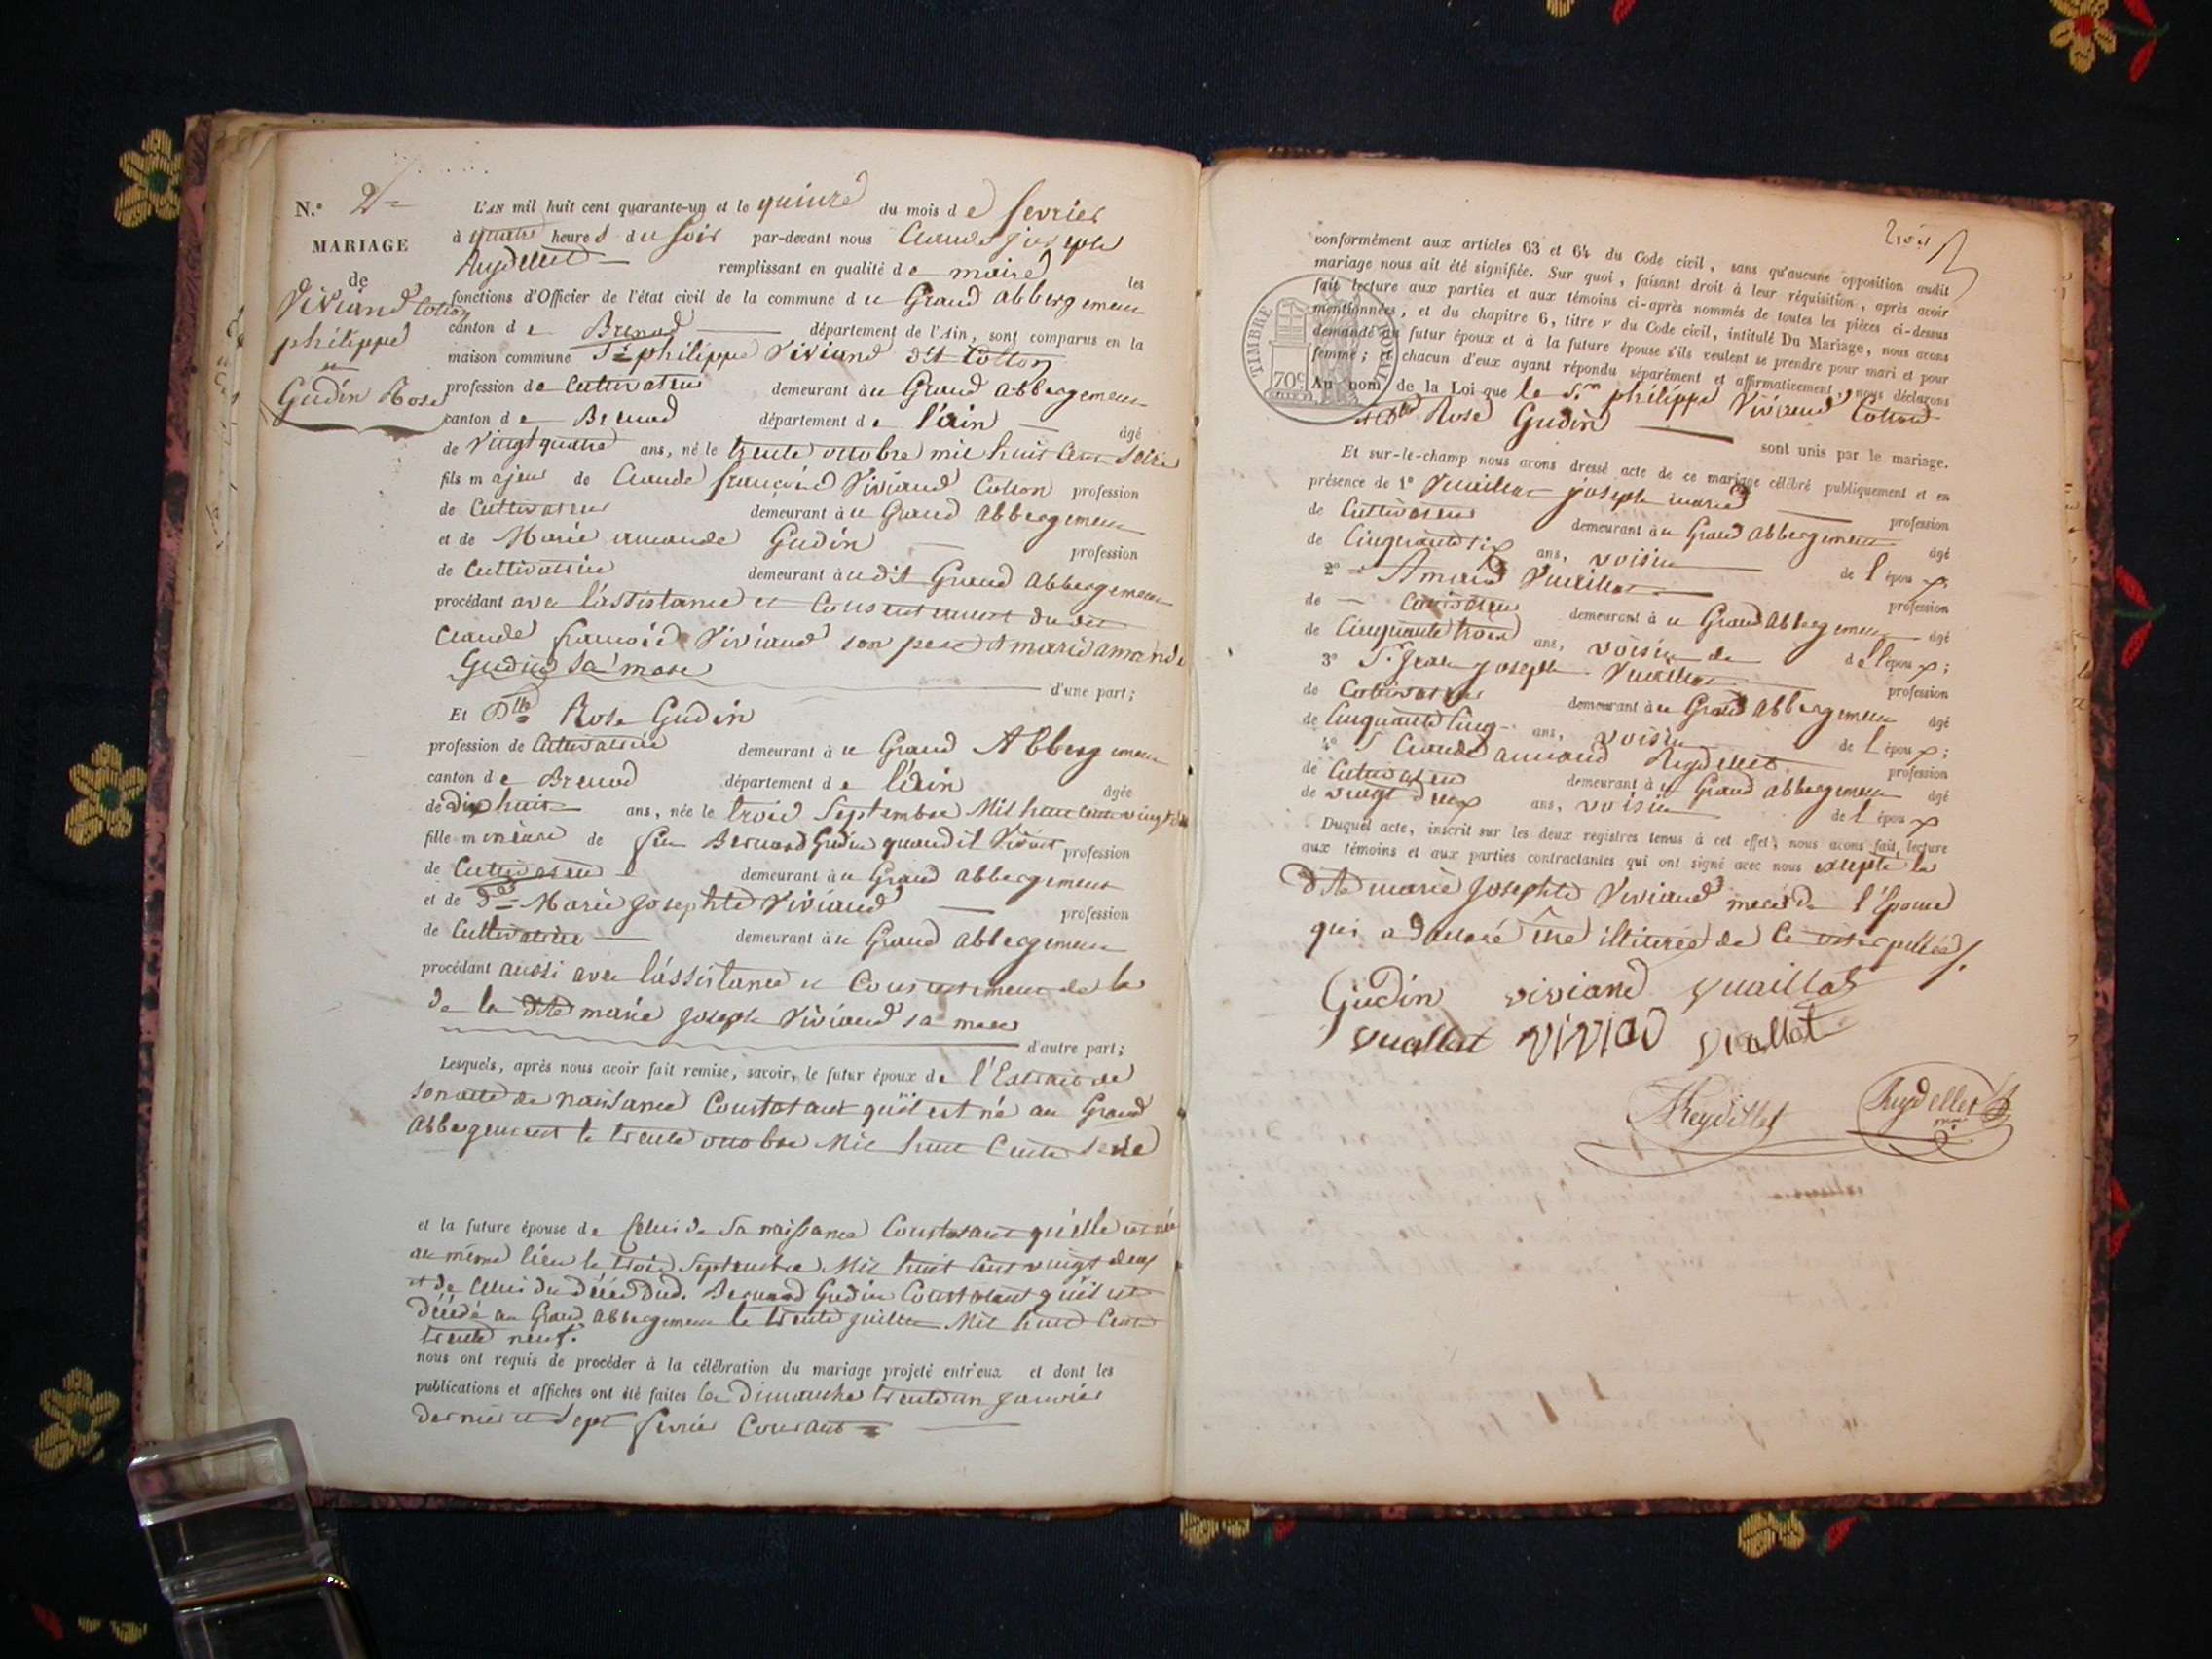 N.° 2
MARIAGE
de
Viviand Cotton
philippe
et
Gudin Rose
L'AN mil huit cent quarante-un et le quinze du mois de fevrier
à quatre heures du soir par-devant nous Claude joseph
Reydellet remplissant en qualité de maire les
fonctions d'Officier de l'état civil de la commune du Grand abbergement
canton de Brenod département de l'Ain, sont comparus en la
maison commune Sr philippe Viviand dit Cotton
profession de Cultivateur demeurant au Grand abbergement
canton de Brenod département de l'ain âgé
de Vingt quatre ans, né le trente octobre mil huit cent seize
fils majeur de Claude françois Viviand Cotton profession
de Cultivateur demeurant au Grand abbergement
et de Marie amande Gudin profession
de Cultivatrice demeurant audit Grand abbergement
procédant avec l'assistance et Consentement dudit
Claude françois Viviand son pere et marie amande
Gudin sa mere
d'une part;
Et Dlle Rose Gudin
profession de Cultivatrice demeurant au Grand Abbergement
canton de Brenod département de l'ain âgée
de dix huit ans, née le trois Septembre Mil huit cent vingt deux
fille mineure de feu Bernard Gudin quand il Vivait profession
de Cultivateur demeurant au Grand abbergement
et de de Marie Josephte Viviand profession
de Cultivatrice demeurant au Grand abbergement
procédant aussi avec l'assistance et Consentement de la
de la dite marie Joseph Viviand sa mere
d'autre part;
Lesquels, après nous avoir fait remise, savoir, le futur époux de l'Extrait de
son acte de naissance Constatant qu'il est né au Grand
Abbergement le trente octobre Mil huit Cents seize
et la future épouse de Celui de sa naissance Constatant qu'elle est née
au même lieu le trois Septembre Mil huit Cent vingt deux
et de Celui du décès dud. Bernard Gudin Constatant qu'il est
décédé au Grand Abbergement le trente juillet Mil huit Cent
trente neuf.
nous ont requis de procéder à la célébration du mariage projeté entr'eux et dont les
publications et affiches ont été faites les Dimanche trente un janvier
dernier et sept fevrier Courant
conformément aux articles 63 et 64 du Code civil, sans qu'aucune opposition audit
mariage nous ait été signifiée. Sur quoi, faisant droit à leur réquisition, après avoir
fait lecture aux parties et aux témoins ci-après nommés de toutes les pièces ci-dessus
mentionnées, et du chapitre 6, titre v du Code civil, intitulé Du Mariage, nous avons
demandé au futur époux et à la future épouse s'ils veulent se prendre pour mari et pour
femme; chacun d'eux ayant répondu séparément et affirmativement, nous déclarons
Au nom de la Loi que le Sr philippe Viviand Cotton
et Dlle Rose Gudin sont unis par le mariage.
TIMBRE ROYAL
70c
Et sur-le-champ nous avons dressé acte de ce mariage célébré publiquement et en
présence de 1° Vuaillat joseph marie profession
de Cultivateur demeurant au Grand Abbergement âgé
de Cinquante six ans, voisin de l'époux
2° Amand Vuaillat profession
de Cultivateur demeurant au Grand Abbergement âgé
de Cinquante trois ans, voisin de de l'époux;
3° Sr Jean joseph Vuaillat profession
de Cultivateur demeurant au Grand Abbergement âgé
de Cinquante Cinq ans, voisin de l'époux;
4° S Claude amand Reydellet profession
de Cultivateur demeurant au Grand abbergement âgé
de vingt deux ans, voisin de l'époux
Duquel acte, inscrit sur les deux registres tenus à cet effet, nous avons fait lecture
aux témoins et aux parties contractantes qui ont signé avec nous excepté la
dite marie Josephte Viviand mere de l'Epouse
qui a declaré être illiterée de Ce interpellée
Gudin viviand vuaillat
vuallat VIVIAD vuallat
Reydellet Reydellet